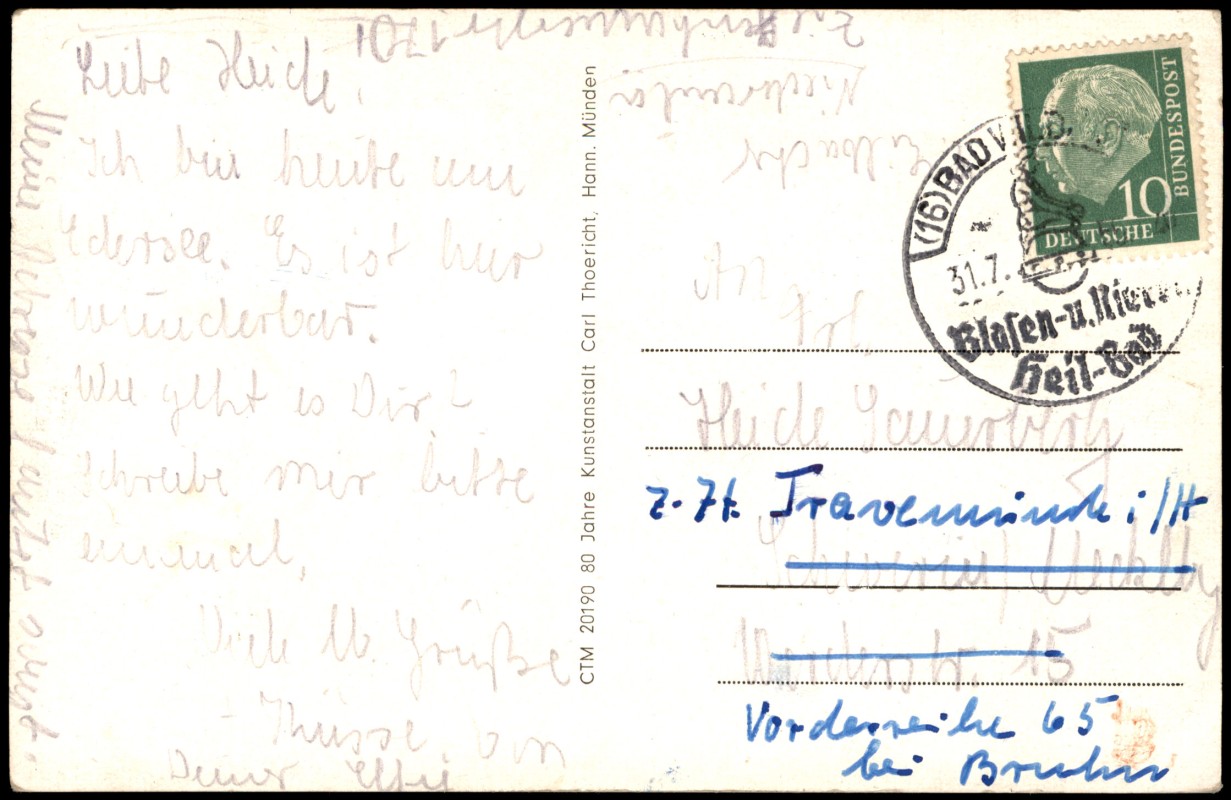 Liebe Heide,
Ich bin heute am
Edersee. Es ist hier
wunderbar.
Wie geht es Dir?
Schreibe mir bitte
einmal,
Viele lb. Grüße
+ Küsse von
Deiner Elfie
Meine Adresse lautet
Niederaula
CTM 20190 80 Jahre Kunstanstalt Carl Thoericht, Hann. Münden
DEUTSCHE
BUNDESPOST
10
(16) BAD
31.7.
Blasen-u. Nieren
Heil-Bad
An
Frl.
Heide Sauerberg
z. Zt. Travemünde i/H
Schwerin/Mecklbg
15
Vorderreihe 65
bei Bruhn